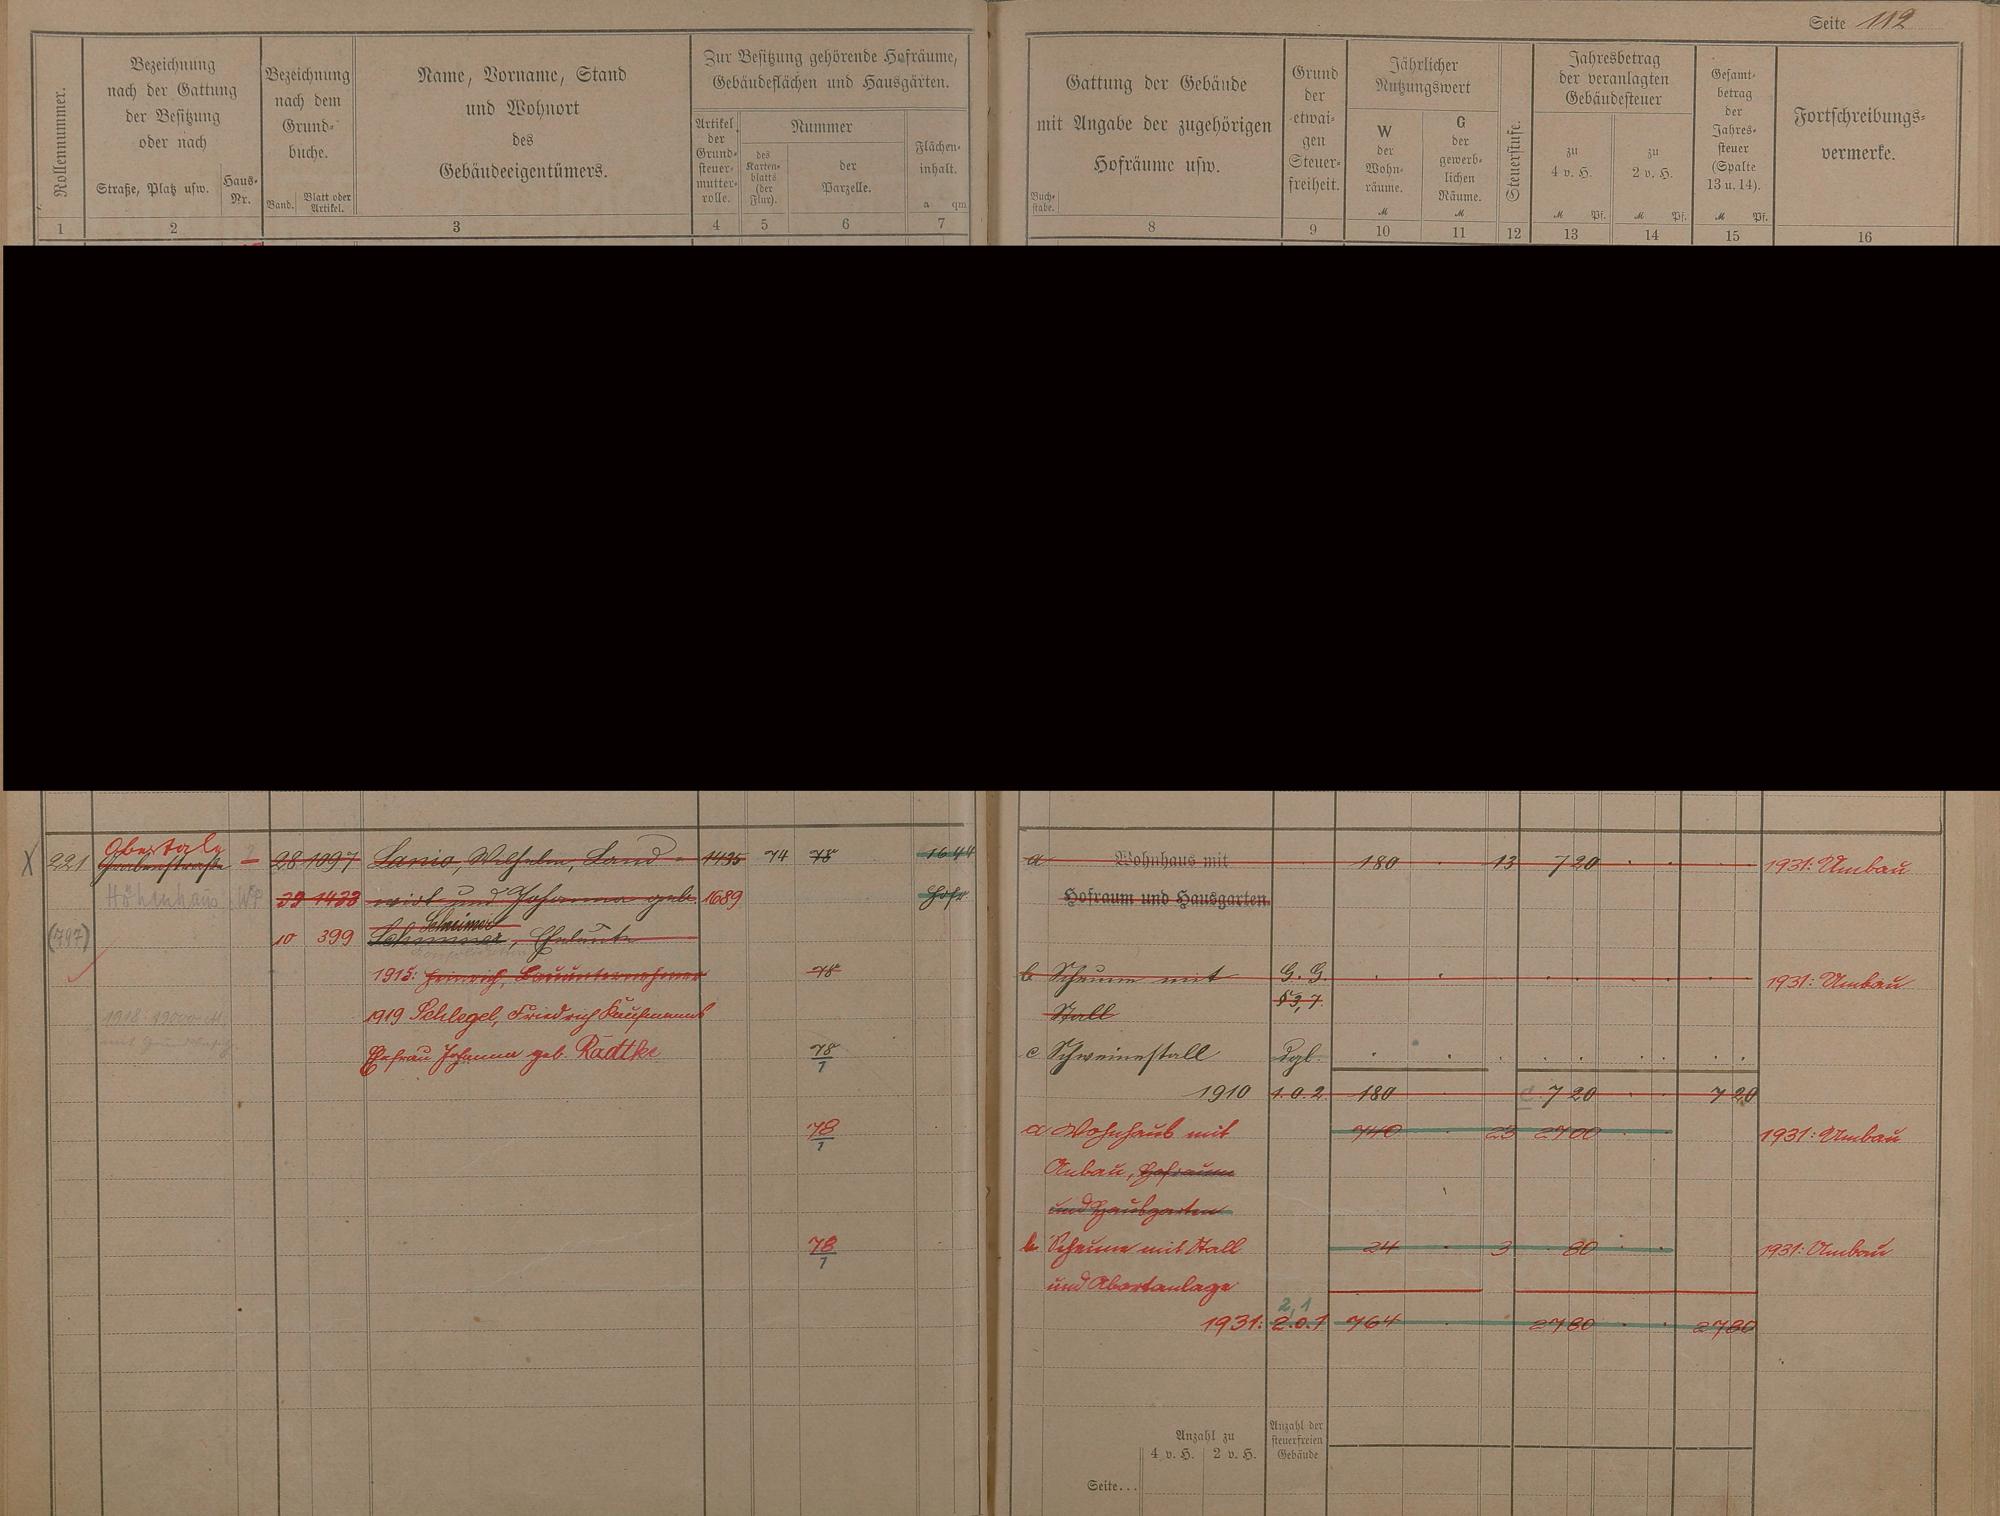 Seite 112
Rollennummer.
Bezeichnung
nach der Gattung
der Besitzung
oder nach
Straße, Platz usw.
Haus-
Nr.
Bezeichnung
nach dem
Grund-
buche.
Band.
Blatt oder
Artikel.
Name, Vorname, Stand
und Wohnort
des
Gebäudeeigentümers.
Zur Besitzung gehörende Hofräume,
Gebäudeflächen und Hausgärten.
Artikel
der
Grund-
steuer-
mutter-
rolle.
Nummer
des
Karten-
blatts
(der
Flur).
der
Parzelle.
Flächen-
inhalt.
a qm
Gattung der Gebäude
mit Angabe der zugehörigen
Hofräume usw.
Buch-
stabe.
Grund
der
etwai-
gen
Steuer-
freiheit.
Jährlicher
Nutzungswert
W
der
Wohn-
räume.
M
G
der
gewerb-
lichen
Räume.
M
Steuerstufe.
Jahresbetrag
der veranlagten
Gebäudesteuer
zu
4 v. H.
M Pf.
zu
2 v. H.
M Pf.
Gesamt-
betrag
der
Jahres-
steuer
(Spalte
13 u. 14).
M Pf.
Fortschreibungs-
vermerke.
1 2 3 4 5 6 7 8 9 10 11 12 13 14 15 16
X 221 Obertalg
Grabenstraße
28 1097 Lanio, Wilhelm, Land- 1435 74 78 1644
a Wohnhaus mit 180 13 7 20 1931: Umbau
Höhenhaus
29 1433 wirt und Johanna geb. 1689 Hofr
Hofraum und Hausgarten.
(797) 10 399 Scheimer, Eheleute
1915: Heinrich, Bauunternehmer 78
b Scheune mit G. G. 1931: Umbau
Stall § 3,7.
1919 Schlegel, Friedrich Kaufmanns
Ehefrau Johanna geb. Radtke 78/1
c Schweinestall dgl.
1910 1.0.2. 180 7 20 7 20
78/1 a Wohnhaus mit 740 23 27 00 1931: Umbau
Anbau, Hofraum
und Hausgarten
78/1 b Scheune mit Stall 24 3 80 1931: Umbau
und Abortanlage
2,1
1931: 2.0.1 764 27 80 27 80
Anzahl zu
4 v. H. 2 v. H.
Anzahl der
steuerfreien
Gebäude
Seite...